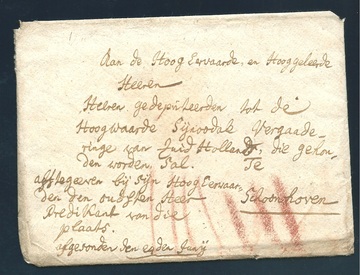 Aan de Hoog Eerwaarde, en Hooggeleerde
Heeren
Heeren gedeputeerden tot de
Hoogwaarde Sijnodale Vergaade-
ringe van Zuid Holland, die gehou-
den worden, Sal. Te
afftegeeven bij Sijn Hoog Eerwaar-
den den oudsten Heer Schoonhoven
Predikant van die
plaats.
afgesonden den Junij